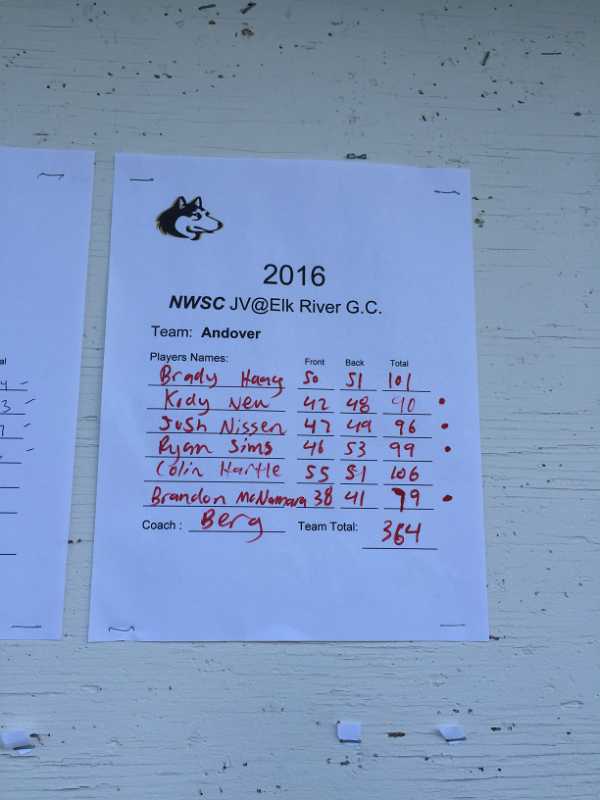 2016
NWSC JV@Elk River G.C.
Team: Andover
Players Names: Front Back Total
Brady Haag 50 51 101
Kody New 42 48 90
Josh Nissen 47 49 96
Ryan Sims 46 53 99
Colin Hartle 55 51 106
Brandon McNamara 38 41 79
Coach : Berg Team Total: 364